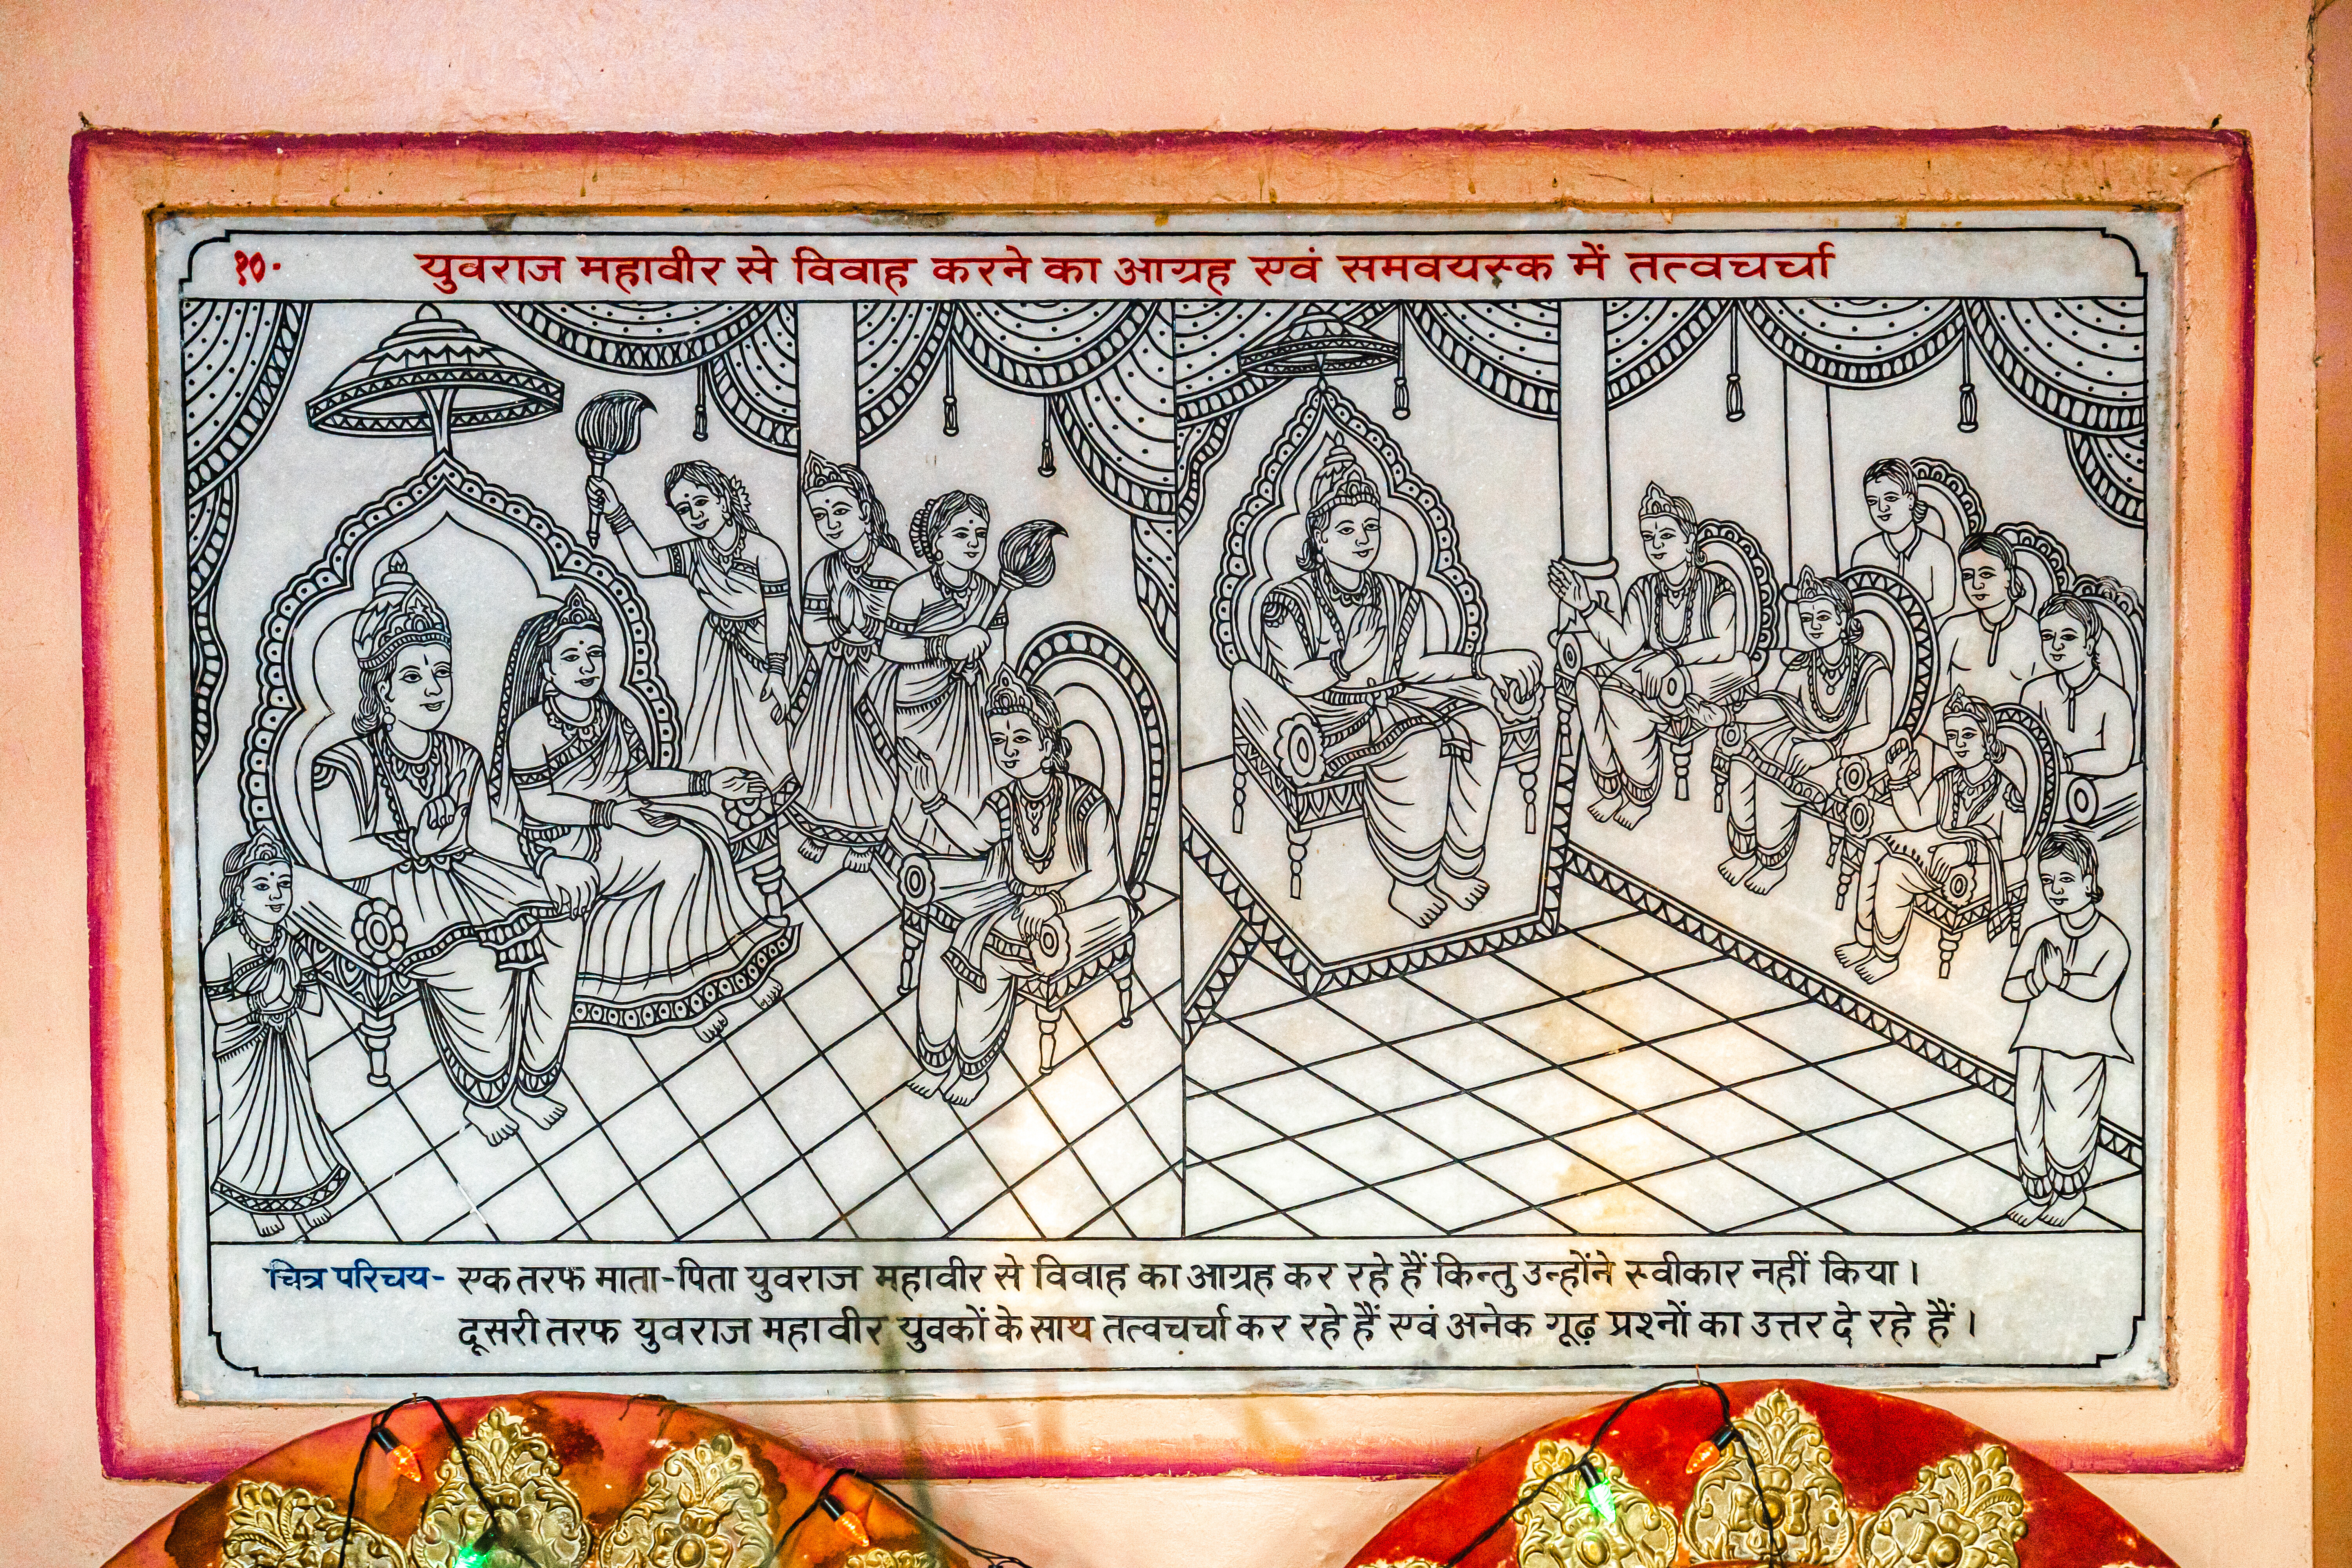 १०. युवराज महावीर से विवाह करने का आग्रह एवं समवयस्क में तत्वचर्चा
चित्र परिचय- एक तरफ माता-पिता युवराज महावीर से विवाह का आग्रह कर रहे हैं किन्तु उन्होंने स्वीकार नहीं किया।
दूसरी तरफ युवराज महावीर युवकों के साथ तत्वचर्चा कर रहे हैं एवं अनेक गूढ़ प्रश्नों का उत्तर दे रहे हैं।